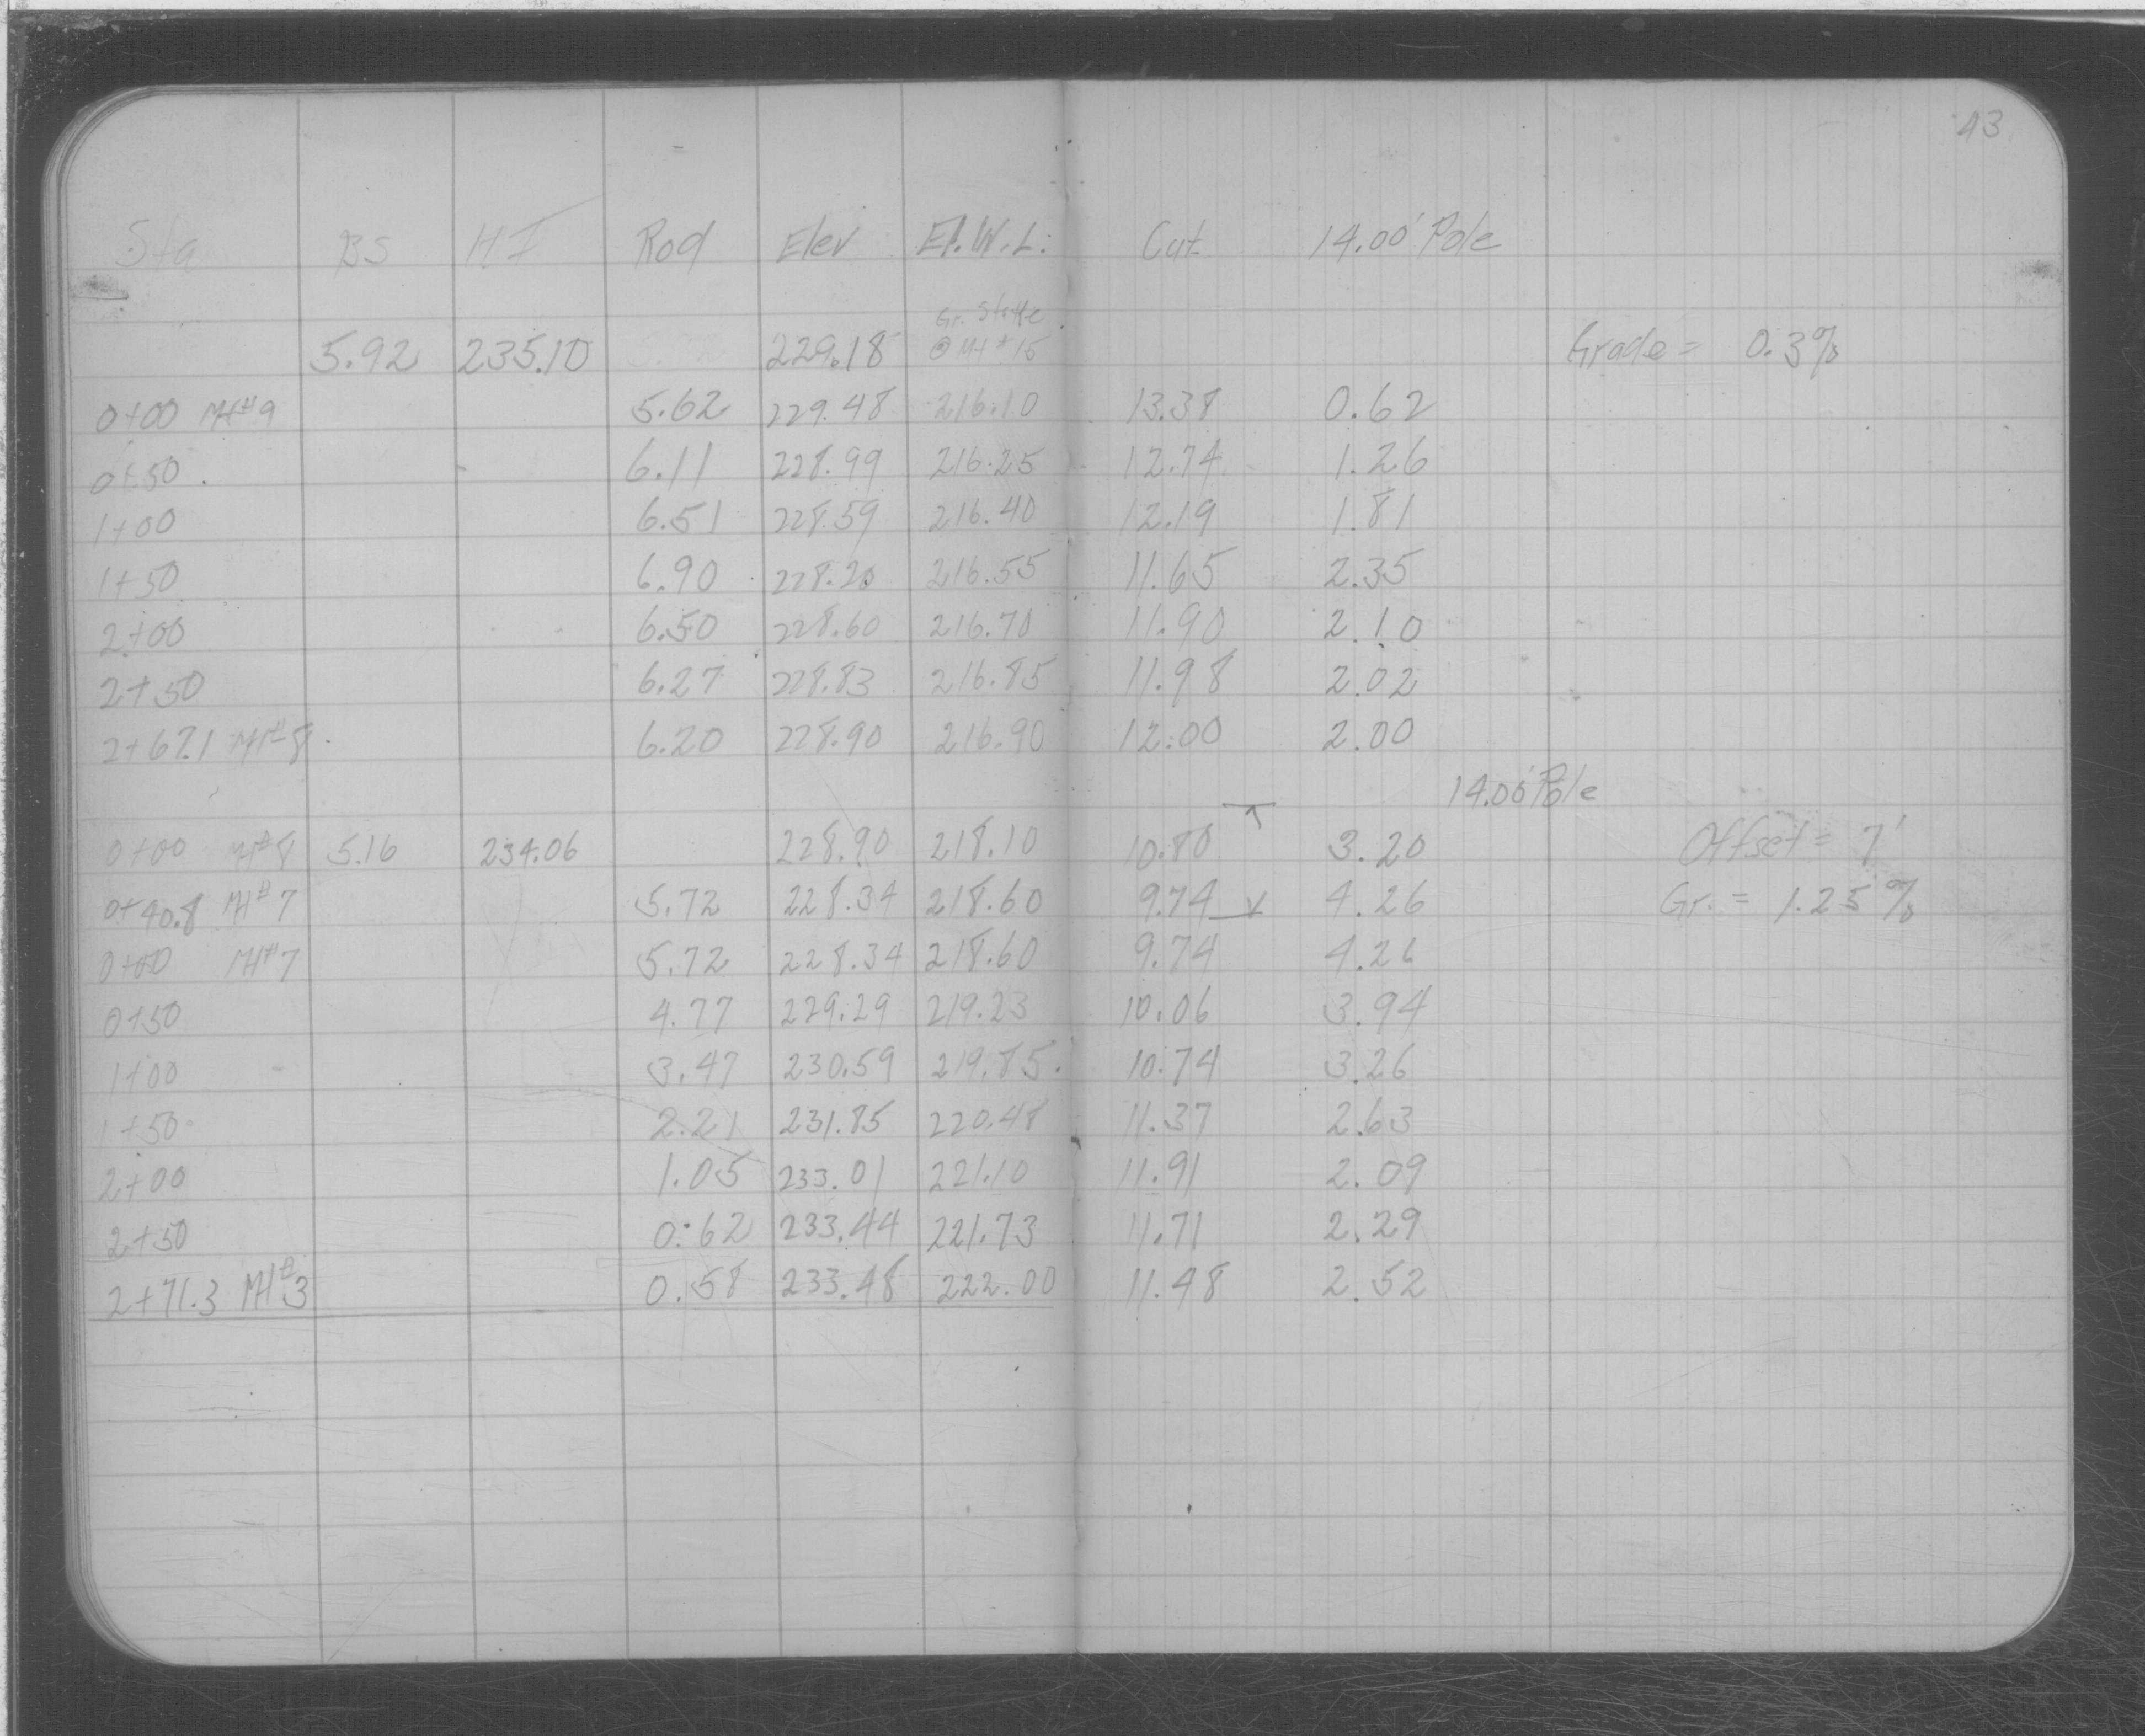 43
Sta BS HI Rod Elev El.W.L. Cut 14.00' Pole
Gr. Stake
5.92 235.10 229.18 @ MH #15 Grade = 0.3%
0+00 MH#9 5.62 229.48 216.10 13.38 0.62
0+50 6.11 228.99 216.25 12.74 1.26
1+00 6.51 228.59 216.40 12.19 1.81
1+50 6.90 228.20 216.55 11.65 2.35
2+00 6.50 228.60 216.70 11.90 2.10
2+50 6.27 228.83 216.85 11.98 2.02
2+67.1 MH#8 6.20 228.90 216.90 12.00 2.00
14.00' Pole
0+00 MH#8 5.16 234.06 228.90 218.10 10.80 3.20 Offset = 7'
0+40.8 MH#7 5.72 228.34 218.60 9.74 4.26 Gr. = 1.25%
0+00 MH#7 5.72 228.34 218.60 9.74 4.26
0+50 4.77 229.29 219.23 10.06 3.94
1+00 3.47 230.59 219.85 10.74 3.26
1+50 2.21 231.85 220.48 11.37 2.63
2+00 1.05 233.01 221.10 11.91 2.09
2+50 0.62 233.44 221.73 11.71 2.29
2+71.3 MH#3 0.58 233.48 222.00 11.48 2.52